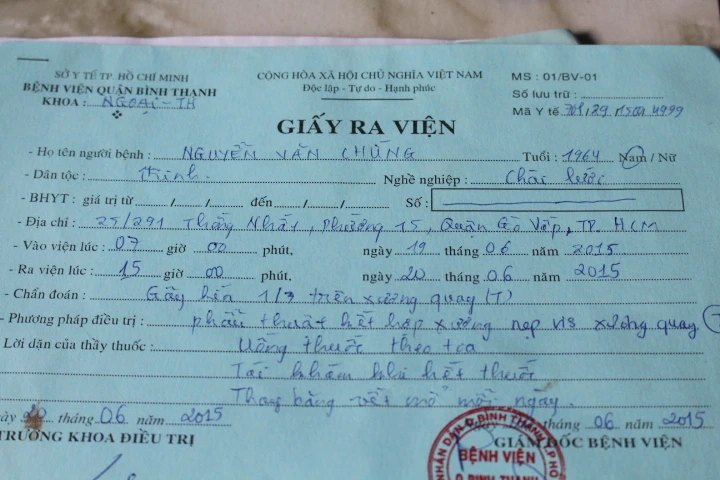 SỞ Y TẾ TP. HỒ CHÍ MINH
BỆNH VIỆN QUẬN BÌNH THẠNH
KHOA : NGOẠI - TH
CỘNG HÒA XÃ HỘI CHỦ NGHĨA VIỆT NAM
Độc lập - Tự do - Hạnh phúc
MS : 01/BV-01
Số lưu trữ :
Mã Y tế 701/29
GIẤY RA VIỆN
- Họ tên người bệnh : NGUYỄN VĂN CHŨNG Tuổi : 1964 Nam / Nữ
- Dân tộc : Kinh. Nghề nghiệp : Chài lưới
- BHYT : giá trị từ / / đến / / Số :
- Địa chỉ : 25/291 Thống Nhất, Phường 15, Quận Gò Vấp, TP. HCM
- Vào viện lúc : 07 giờ 00 phút, ngày 19 tháng 06 năm 2015
- Ra viện lúc : 15 giờ 00 phút, ngày 20 tháng 06 năm 2015
- Chẩn đoán : Gãy kín 1/3 trên xương quay (T)
- Phương pháp điều trị : phẫu thuật kết hợp xương nẹp vis xương quay
Lời dặn của thầy thuốc : Uống thuốc theo toa
Tái khám khi hết thuốc
Thay băng vết mổ mỗi ngày.
ngày 20 tháng 06 năm 2015
tháng 06 năm 2015
TRƯỞNG KHOA ĐIỀU TRỊ
GIÁM ĐỐC BỆNH VIỆN
NHÂN DÂN Q.BÌNH THẠNH T.P HỒ
BỆNH VIỆN
Q.BÌNH THẠNH